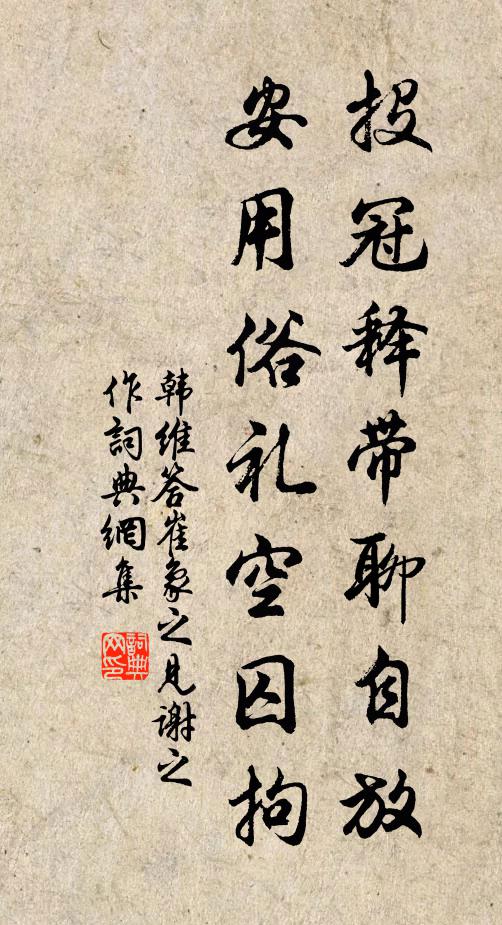 投冠释带聊自放
安用俗礼空囚拘
韩维答崔象之见谢之
作詞典網集
詞典网印